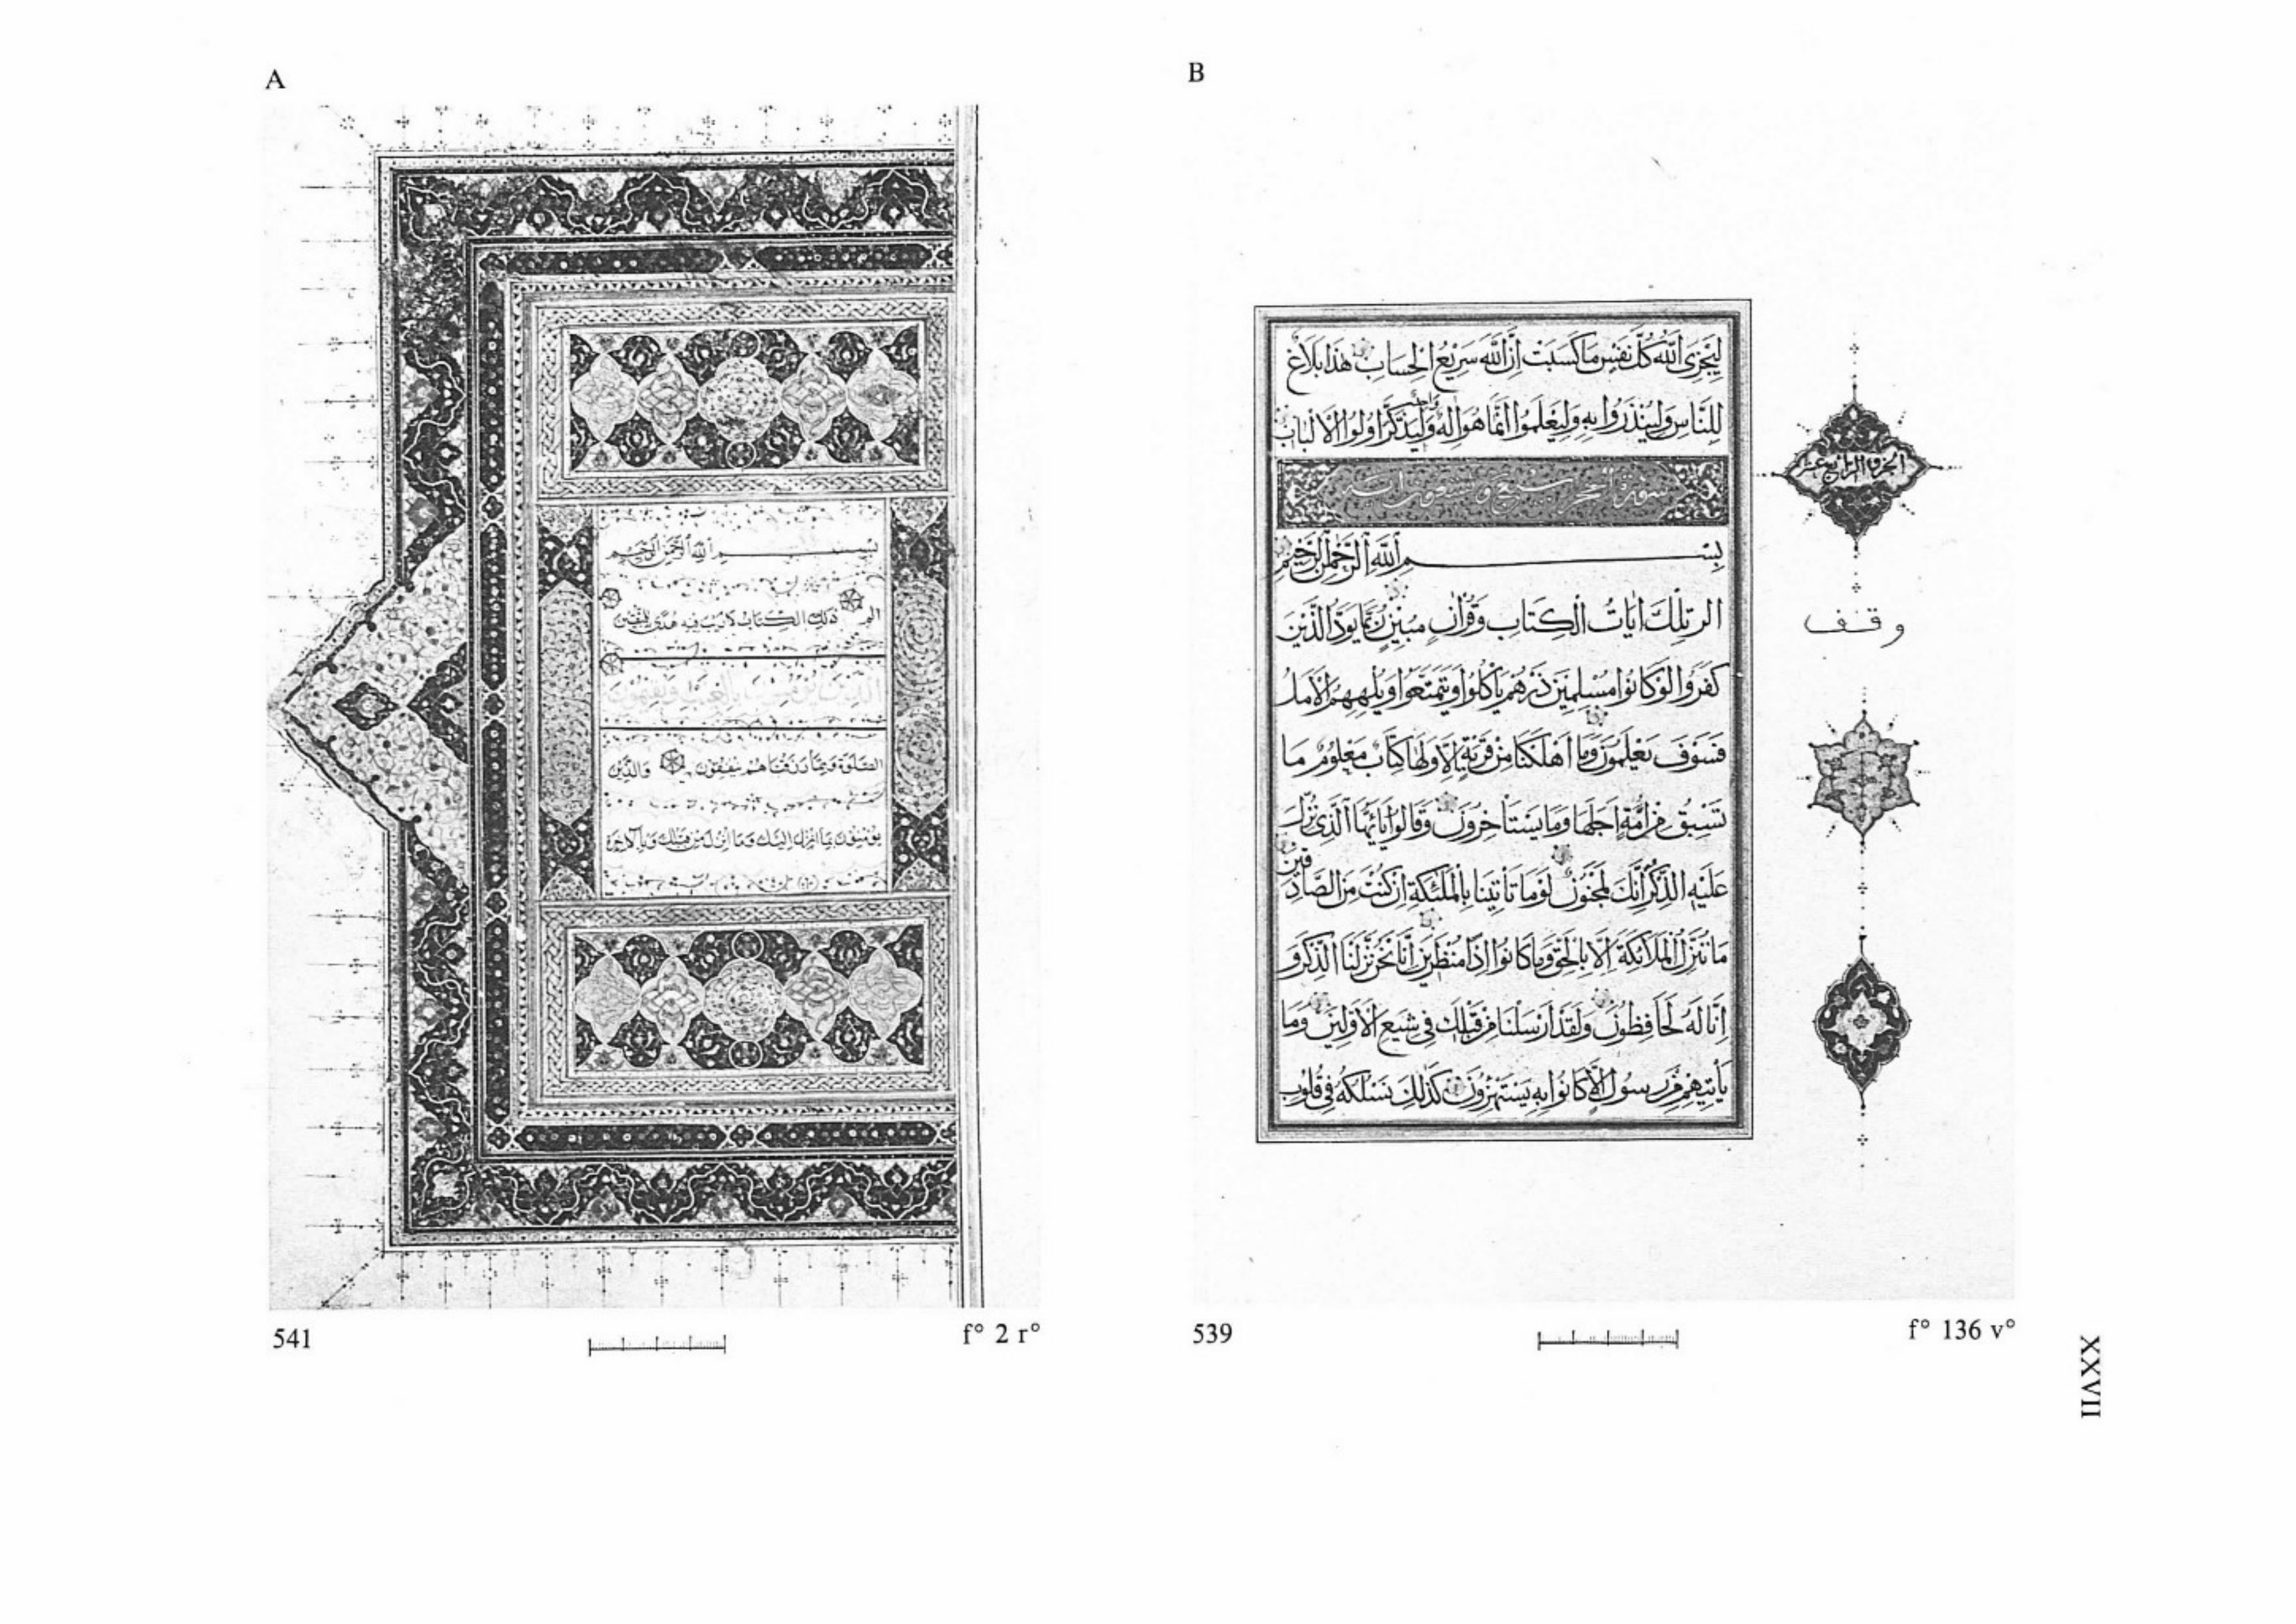 A
بسم الله الرحمن الرحيم
الم ذلك الكتاب لا ريب فيه هدى للمتقين
الذين يؤمنون بالغيب ويقيمون
الصلوة ومما رزقناهم ينفقون والذين
يؤمنون بما انزل اليك وما انزل من قبلك وبالآخرة
541
f° 2 r°
B
لِيَجْزِىَ اللَّهُ كُلَّ نَفْسٍ مَا كَسَبَتْ اِنَّ اللَّهَ سَرِيعُ الْحِسَابِ هٰذَا بَلَاغٌ
لِلنَّاسِ وَلِيُنْذَرُوا بِهِ وَلِيَعْلَمُوا اَنَّمَا هُوَ اِلٰهٌ وَاحِدٌ وَلِيَذَّكَّرَ اُولُوا الْاَلْبَابِ
سورة الحجر تسع وتسعون اية
بِسْمِ اللَّهِ الرَّحْمٰنِ الرَّحِيمِ
الر تِلْكَ اٰيَاتُ الْكِتَابِ وَقُرْاٰنٍ مُبِينٍ رُبَمَا يَوَدُّ الَّذِينَ
كَفَرُوا لَوْ كَانُوا مُسْلِمِينَ ذَرْهُمْ يَأْكُلُوا وَيَتَمَتَّعُوا وَيُلْهِهِمُ الْاَمَلُ
فَسَوْفَ يَعْلَمُونَ وَمَا اَهْلَكْنَا مِنْ قَرْيَةٍ اِلَّا وَلَهَا كِتَابٌ مَعْلُومٌ مَا
تَسْبِقُ مِنْ اُمَّةٍ اَجَلَهَا وَمَا يَسْتَأْخِرُونَ وَقَالُوا يَا اَيُّهَا الَّذِى نُزِّلَ
عَلَيْهِ الذِّكْرُ اِنَّكَ لَمَجْنُونٌ لَوْ مَا تَأْتِينَا بِالْمَلٰئِكَةِ اِنْ كُنْتَ مِنَ الصَّادِقِينَ
مَا نُنَزِّلُ الْمَلَائِكَةَ اِلَّا بِالْحَقِّ وَمَا كَانُوا اِذًا مُنْظَرِينَ اِنَّا نَحْنُ نَزَّلْنَا الذِّكْرَ وَ
اِنَّا لَهُ لَحَافِظُونَ وَلَقَدْ اَرْسَلْنَا مِنْ قَبْلِكَ فِى شِيَعِ الْاَوَّلِينَ وَمَا
يَأْتِيهِمْ مِنْ رَسُولٍ اِلَّا كَانُوا بِهِ يَسْتَهْزِؤُنَ كَذٰلِكَ نَسْلُكُهُ فِى قُلُوبِ
الجزو الرابع عشر
وقف
539
f° 136 v°
XXVII